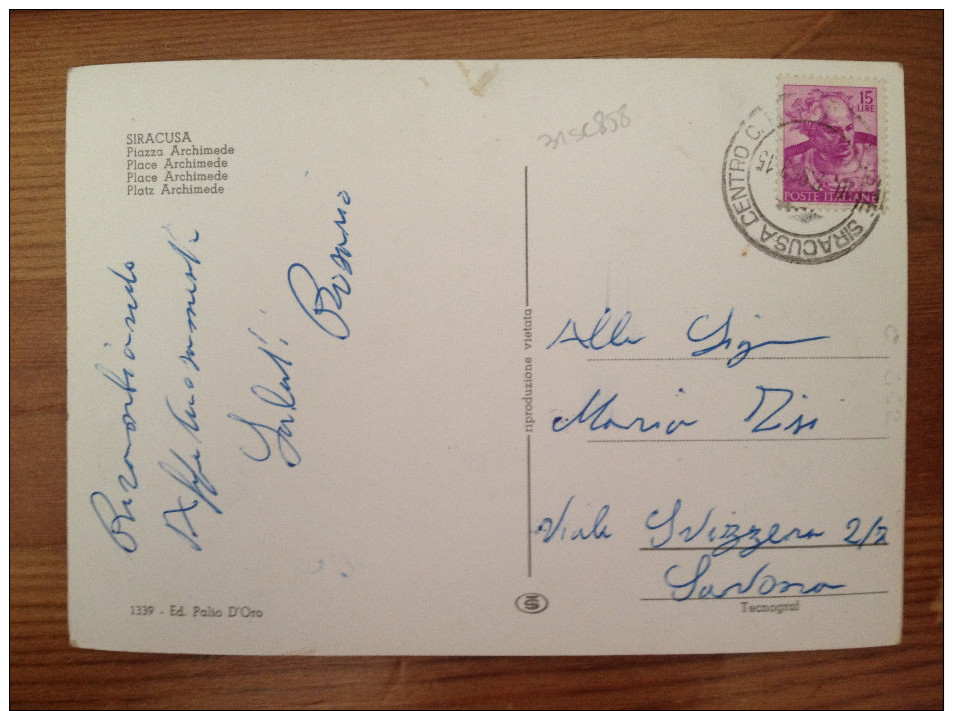 SIRACUSA
Piazza Archimede
Place Archimede
Place Archimede
Platz Archimede
Ricambiando
Affettuosamente
Saluti
Rosario
1339 - Ed. Palio D'Oro
riproduzione vietata
315C858
15
LIRE
POSTE ITALIANE
SIRACUSA CENTRO
Alla Sig
Maria
Viale Svizzera 2/2
Savona
Tecnograf